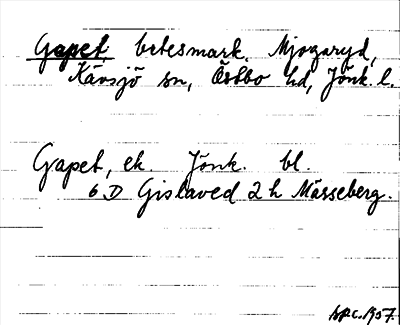 Gapet, betesmark, Mjogaryd,
Kävsjö sn, Östbo hd, Jönk. l.
Gapet, ek. Jönk. bl.
6 D Gislaved 2 h Mässeberg.
1957.